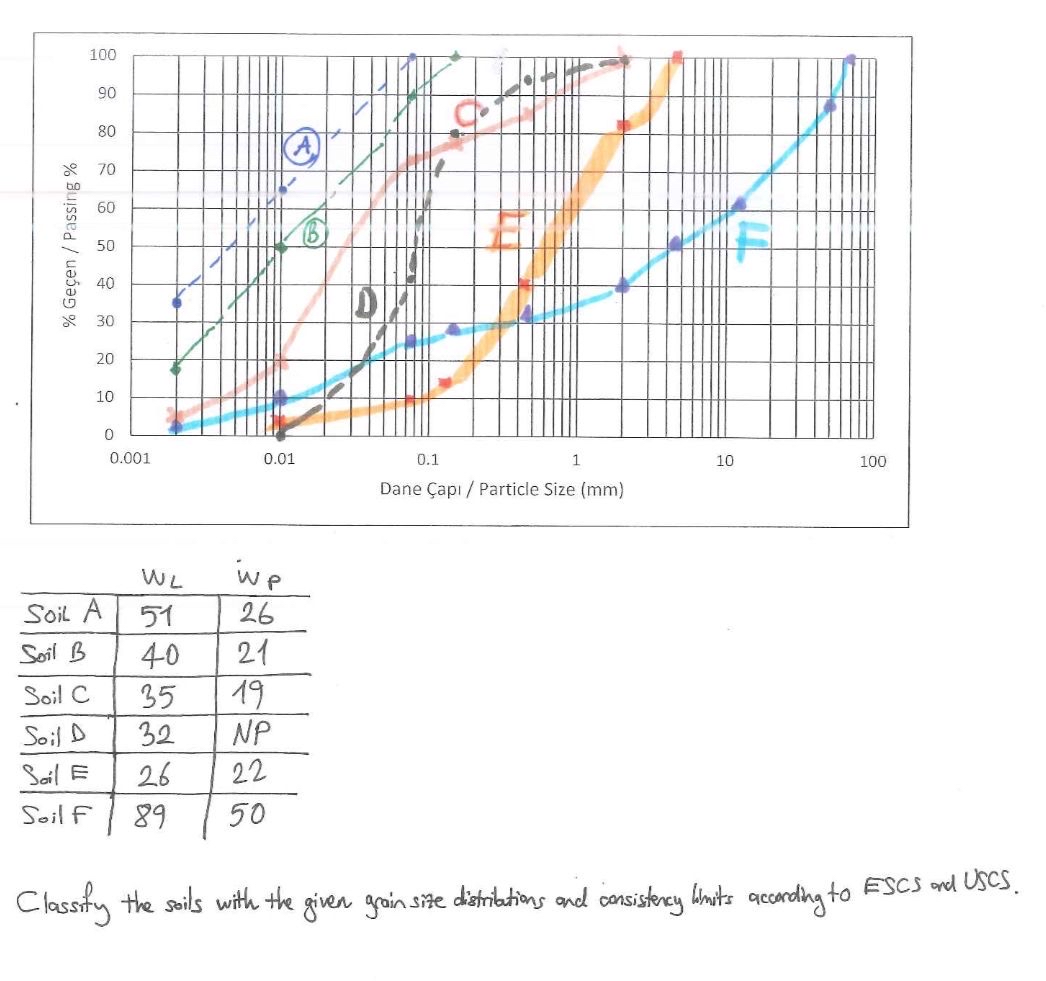 100
90
80
70
60
50
40
30
20
10
0
% Geçen / Passing %
A
B
C
D
E
F
0.001 0.01 0.1 1 10 100
Dane Çapı / Particle Size (mm)
WL WP
Soil A 51 26
Soil B 40 21
Soil C 35 19
Soil D 32 NP
Soil E 26 22
Soil F 89 50
Classify the soils with the given grain size distributions and consistency limits according to ESCS and USCS.